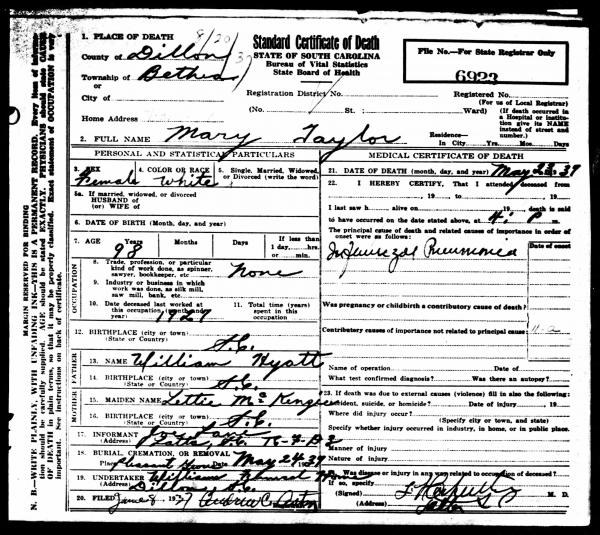 8/20/37
1. PLACE OF DEATH
County of Dillon
Township of Bethea
City of
Home Address
Standard Certificate of Death
STATE OF SOUTH CAROLINA
Bureau of Vital Statistics
State Board of Health
Registration District No.
(No. St.; Ward)
File No.—For State Registrar Only
6923
Registered No.
(For us of Local Registrar)
(If death occurred in a Hospital or institution give its NAME instead of street and number.)
2. FULL NAME Mary Taylor
Residence— In City Yrs. Mos. Days
PERSONAL AND STATISTICAL PARTICULARS
3. SEX Female
4. COLOR OR RACE White
5. Single, Married, Widowed, or Divorced (write the word)
5a. If married, widowed, or divorced
HUSBAND of
(or) WIFE of
6. DATE OF BIRTH (Month, day, and year)
7. AGE Years 98 Months Days If less than 1 day, hrs. or min.
OCCUPATION
8. Trade, profession, or particular kind of work done, as spinner, sawyer, bookkeeper, etc. None
9. Industry or business in which work was done, as silk mill, saw mill, bank, etc.
10. Date deceased last worked at this occupation (month and year) 1927
11. Total time (years) spent in this occupation
12. BIRTHPLACE (city or town) (State or Country) S.C.
FATHER
13. NAME William Hyatt
14. BIRTHPLACE (city or town) (State or Country) S.C.
MOTHER
15. MAIDEN NAME Lettie
16. BIRTHPLACE (city or town) (State or Country) S.C.
17. INFORMANT
(Address) Latta,
18. BURIAL, CREMATION, OR REMOVAL
Place Pleasant Date May 24 37
19. UNDERTAKER William
(Address) Dillon, S.C.
20. FILED June 8 1937
MEDICAL CERTIFICATE OF DEATH
21. DATE OF DEATH (month, day, and year) May 23 37
22. I HEREBY CERTIFY, That I attended deceased from
, 19 , to , 19
I last saw h alive on , 19 , death is said
to have occurred on the date stated above, at 4: P
The principal cause of death and related causes of importance in order of onset were as follows:
Date of onset
Influenzal Pneumonia
Was pregnancy or childbirth a contributory cause of death?
Contributory causes of importance not related to principal cause
Name of operation Date of
What test confirmed diagnosis? Was there an autopsy?
23. If death was due to external causes (violence) fill in also the following:
Accident, suicide, or homicide? Date of injury , 19
Where did injury occur?
Specify whether injury occurred in industry, in home, or in public place.
Manner of injury
Nature of injury
Was disease or injury in any way related to occupation of deceased?
If so, specify
(Signed) M. D.
(Address) Latta
MARGIN RESERVED FOR BINDING
N. B.—WRITE PLAINLY, WITH UNFADING INK—THIS IS A PERMANENT RECORD. Every item of information should be carefully supplied. AGE should be stated EXACTLY. PHYSICIANS should state CAUSE OF DEATH in plain terms, so that it may be properly classified. Exact statement of OCCUPATION is very important. See instructions on back of certificate.